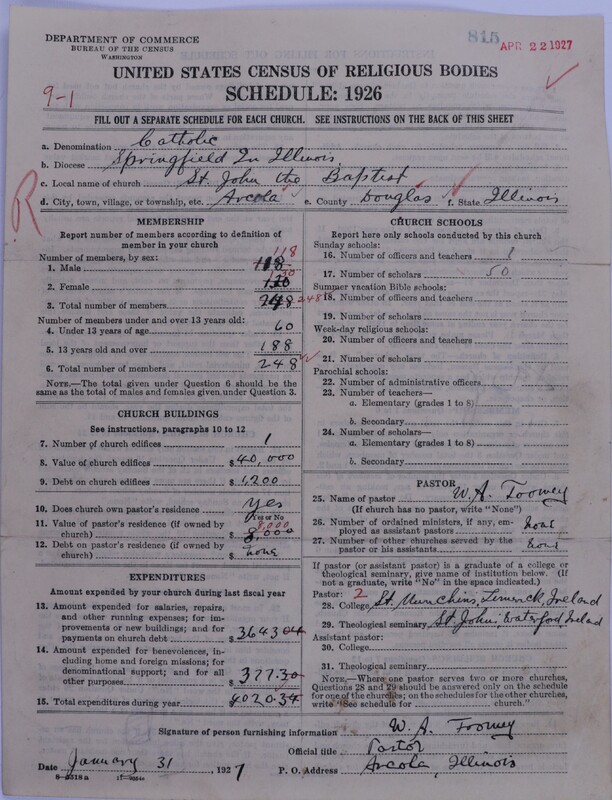 DEPARTMENT OF COMMERCE
BUREAU OF THE CENSUS
WASHINGTON
815
APR 22 1927
UNITED STATES CENSUS OF RELIGIOUS BODIES
SCHEDULE: 1926
9-1
FILL OUT A SEPARATE SCHEDULE FOR EACH CHURCH. SEE INSTRUCTIONS ON THE BACK OF THIS SHEET
a. Denomination Catholic
b. Diocese Springfield In Illinois
c. Local name of church St. John the Baptist
d. City, town, village, or township, etc. Arcola e. County Douglas f. State Illinois
R
MEMBERSHIP
Report number of members according to definition of member in your church
Number of members, by sex:
118
1. Male 118
130
2. Female 130
3. Total number of members 248 248
Number of members under and over 13 years old:
4. Under 13 years of age 60
5. 13 years old and over 188
6. Total number of members 248
NOTE.—The total given under Question 6 should be
the same as the total of males and females given under Question 3.
CHURCH BUILDINGS
See instructions, paragraphs 10 to 12
7. Number of church edifices 1
8. Value of church edifices $ 40,000
9. Debt on church edifices $ 1,200
10. Does church own pastor's residence Yes
Yes or No
11. Value of pastor's residence (if owned by
church) $ 8,000
8,000
12. Debt on pastor's residence (if owned by
church) $ none
EXPENDITURES
Amount expended by your church during last fiscal year
13. Amount expended for salaries, repairs,
and other running expenses; for im-
provements or new buildings; and for
payments on church debt $ 3643 04
14. Amount expended for benevolences, in-
cluding home and foreign missions; for
denominational support; and for all
other purposes $ 377.30
15. Total expenditures during year $ 4020.34
CHURCH SCHOOLS
Report here only schools conducted by this church
Sunday schools:
16. Number of officers and teachers
17. Number of scholars 50
Summer vacation Bible schools:
18. Number of officers and teachers
19. Number of scholars
Week-day religious schools:
20. Number of officers and teachers
21. Number of scholars
Parochial schools:
22. Number of administrative officers
23. Number of teachers—
a. Elementary (grades 1 to 8)
b. Secondary
24. Number of scholars—
a. Elementary (grades 1 to 8)
b. Secondary
PASTOR
25. Name of pastor W. A. Toomey
(If church has no pastor, write "None")
26. Number of ordained ministers, if any, em-
ployed as assistant pastors none
27. Number of other churches served by the
pastor or his assistants none
If pastor (or assistant pastor) is a graduate of a college or
theological seminary, give name of institution below. (If
not a graduate, write "No" in the space indicated.)
Pastor: 2
28. College St. Munchins, Limerick, Ireland
29. Theological seminary St Johns, Waterford, Ireland
Assistant pastor:
30. College
31. Theological seminary
NOTE.—Where one pastor serves two or more churches,
Questions 28 and 29 should be answered only on the schedule
for one of the churches; on the schedules for the other churches,
write "See schedule for church."
Signature of person furnishing information W. A. Toomey
Official title Pastor
Date January 31, 1927 P. O. Address Arcola, Illinois
8-2318a